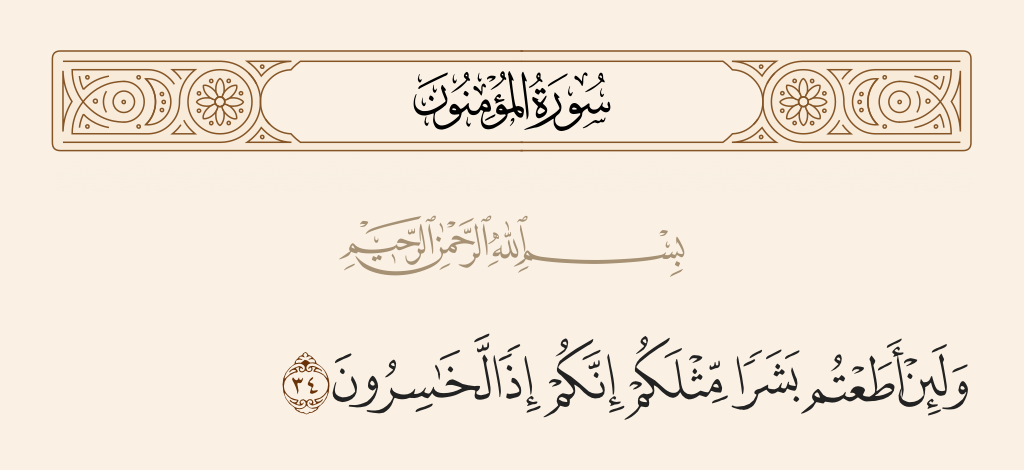 سُورَةُ المُؤْمِنُونَ
بِسْمِ ٱللَّهِ ٱلرَّحْمَٰنِ ٱلرَّحِيمِ
وَلَئِنْ أَطَعْتُم بَشَرًا مِّثْلَكُمْ إِنَّكُمْ إِذًا لَّخَٰسِرُونَ ٣٤